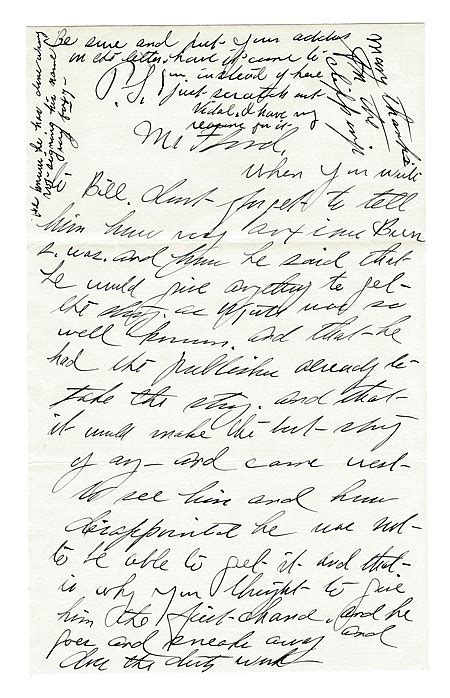 Be sure and put your address
on the letter. have it come to
you. instead of here
P.S. just scratch out
Vidal. I have my
reasons for it
many thanks
for the
clipping
Mr Ford,
when you write
Bill. dont forget to tell
him how very anxious Burn
s. was. and how he said that
he would give anything to get
the story. as Wyatt was so
well known. and that he
had the publisher already to
take the story. and that
it would make the best story
of any and came west
to see him and how
disappointed he was not
to be able to get it and that
is why you thought to give
him the first chand. and he
goes and sneaks away and
does the dirty work